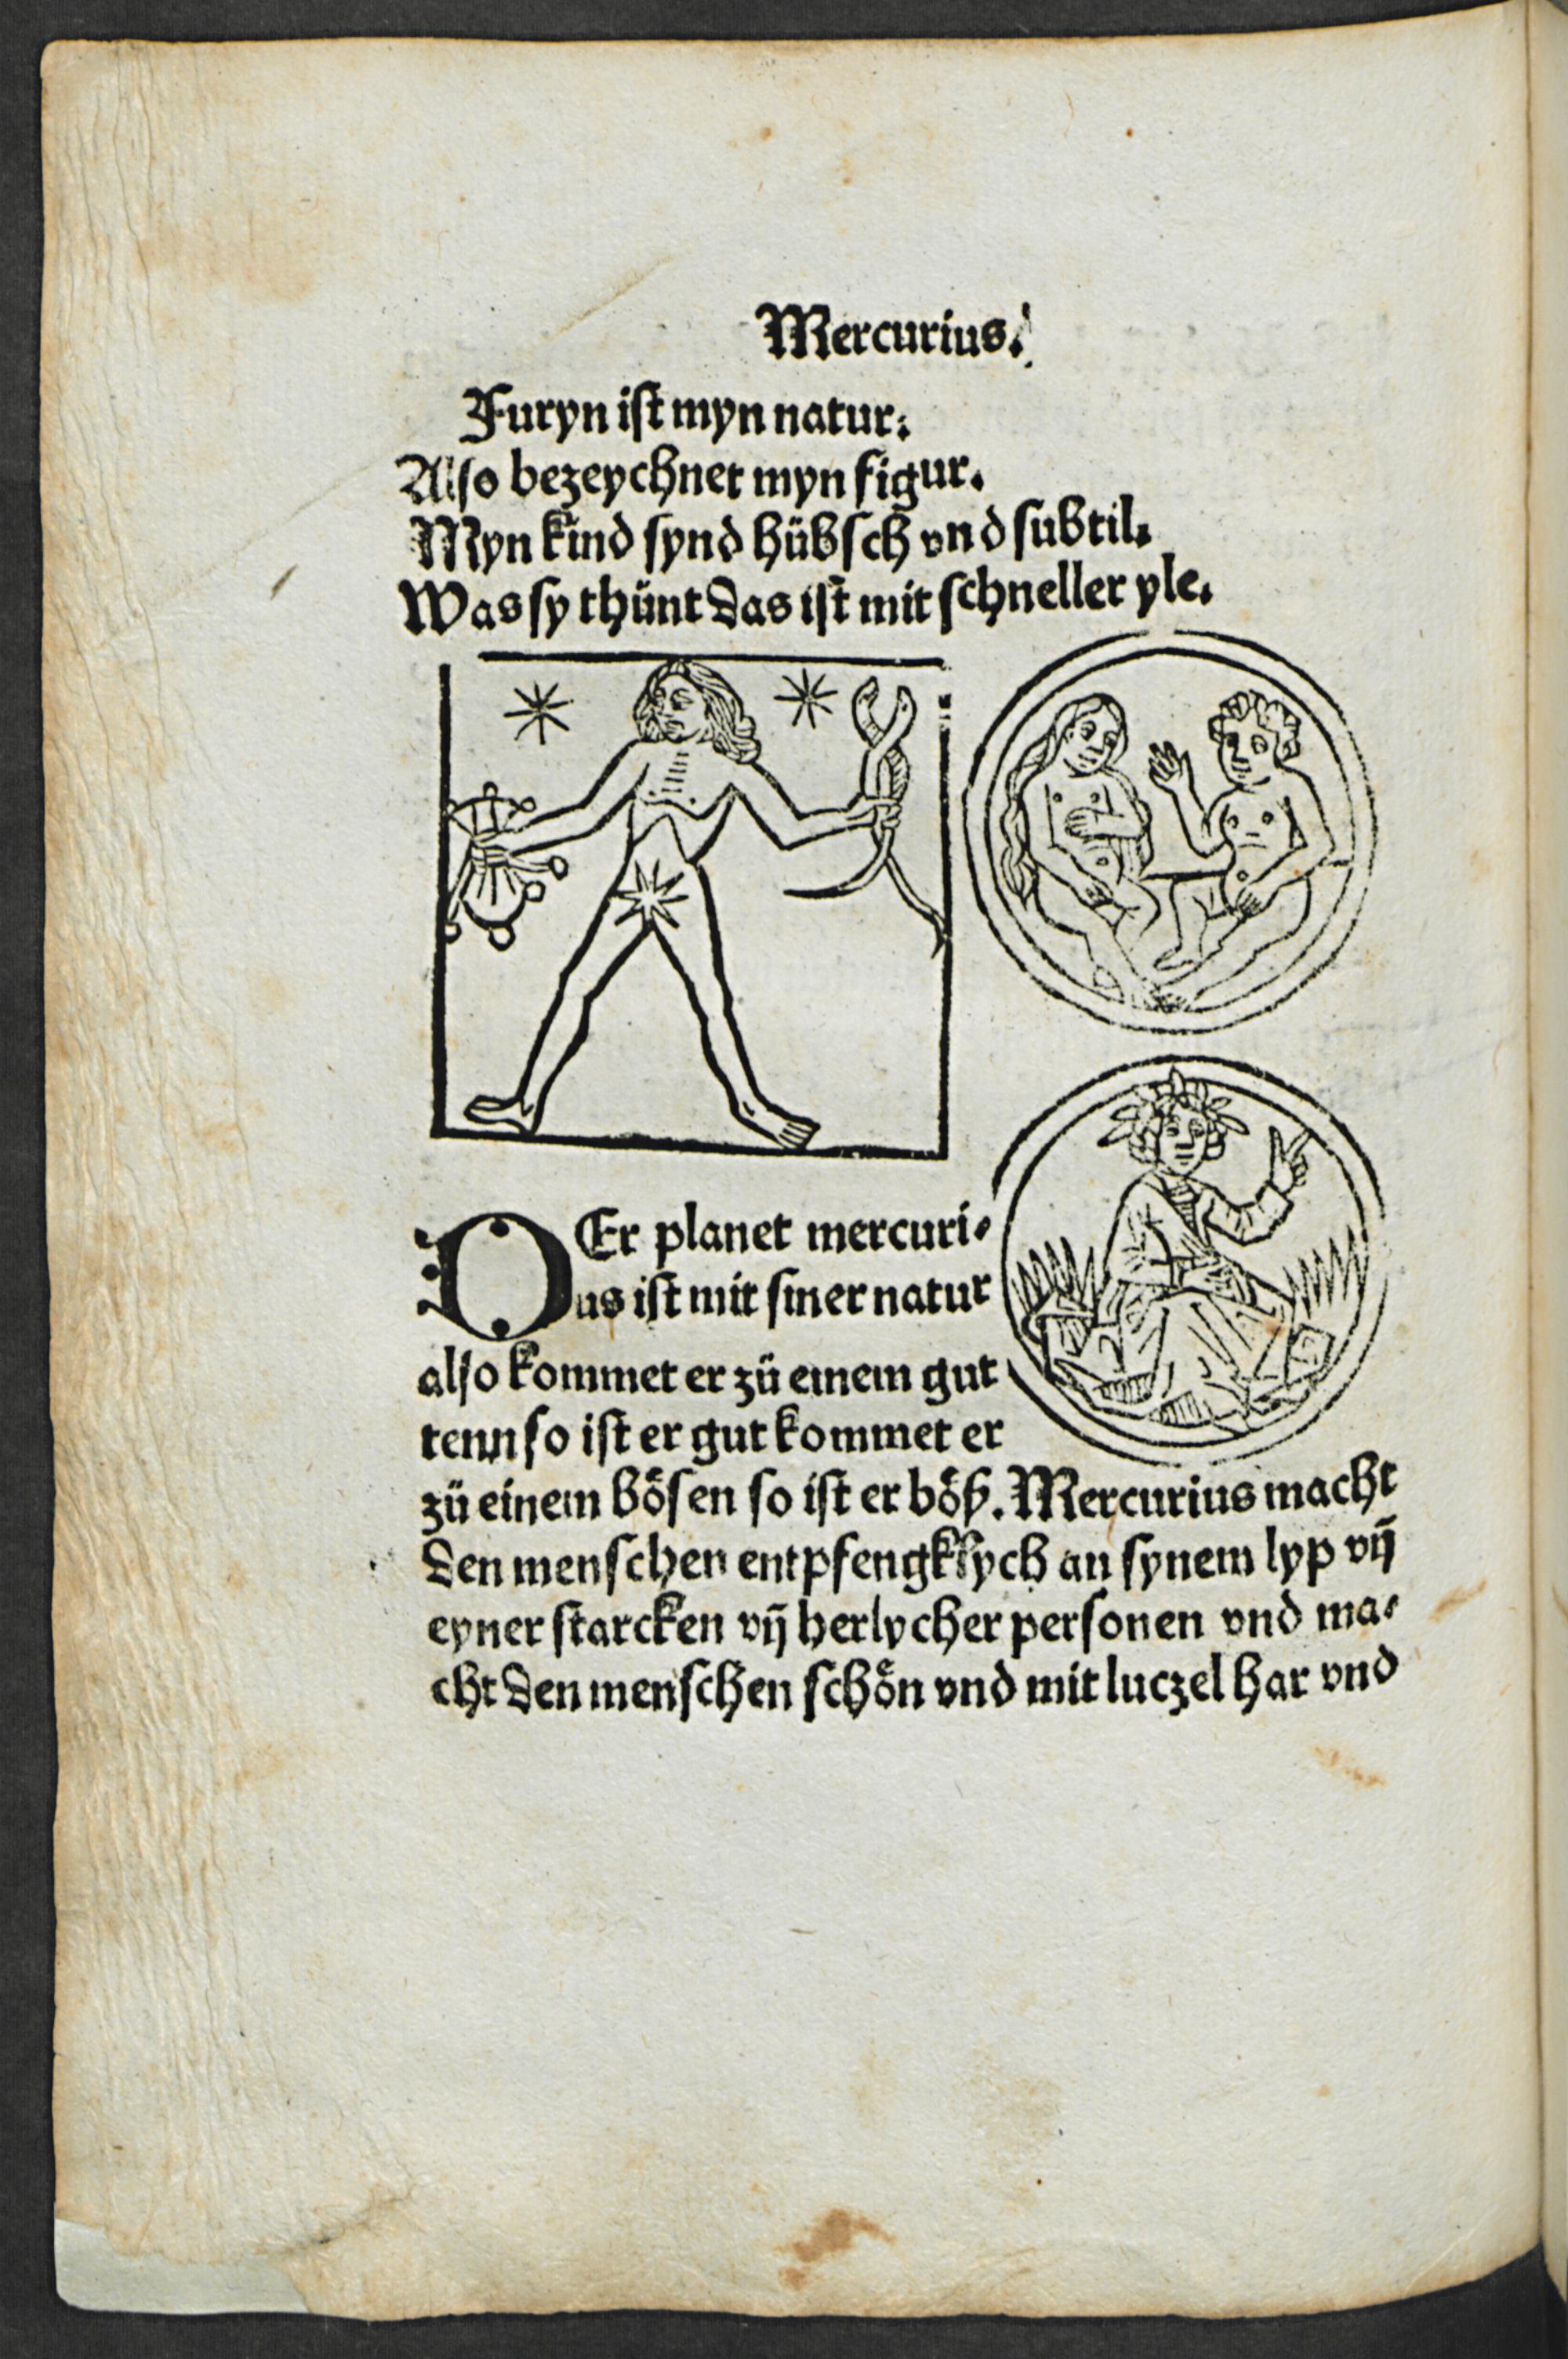 Mercurius.
Furyn ist myn natur:
Also bezeychnet myn figur.
Myn kind synd hübsch vnd subtil.
Was sy thünt das ist mit schneller yle.
DEr planet mercuri⸗
us ist mit siner natur
also kommet er zü einem gut
tenn so ist er gut kommet er
zü einem bösen so ist er böß. Mercurius macht
den menschen entpfengklych an synem lyp vn̄
eyner starcken vn̄ herlycher personen vnd ma⸗
cht den menschen schön vnd mit luczel har vnd